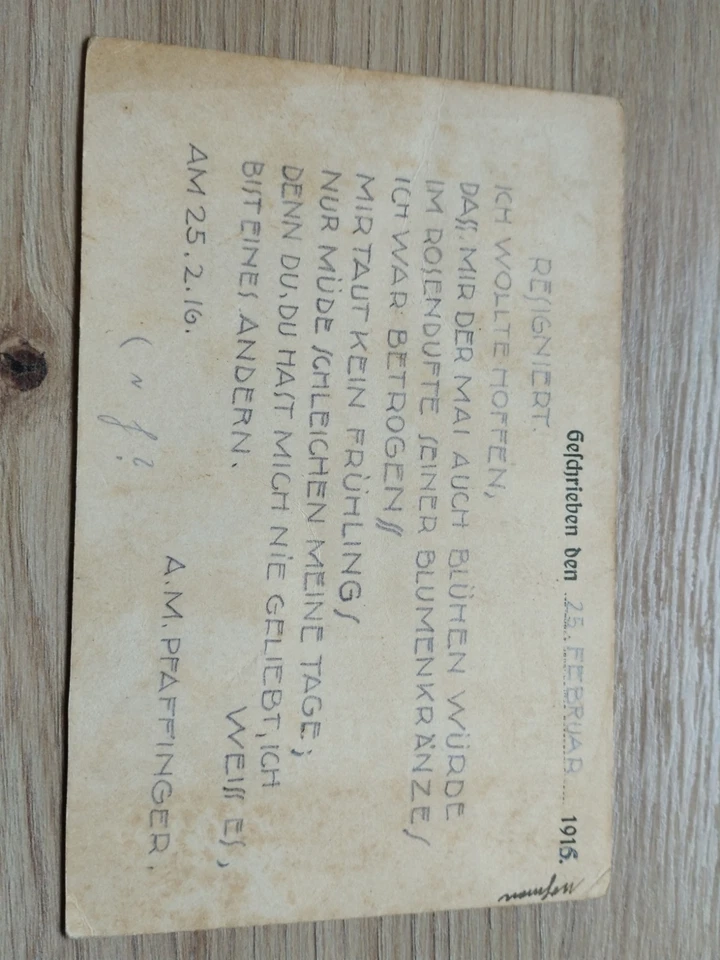 Geschrieben den 25. FEBRUAR 1916.
RESIGNIERT.
ICH WOLLTE HOFFEN,
DASS MIR DER MAI AUCH BLÜHEN WÜRDE
IM ROSENDUFTE SEINER BLUMENKRÄNZES
ICH WAR BETROGENSS
MIR TAUT KEIN FRÜHLINGS
NUR MÜDE SCHLEICHEN MEINE TAGE;
DENN DU, DU HAST MICH NIE GELIEBT, ICH
WEISS ES,
BIST EINES ANDERN.
AM 25.2.16.
A.M. PFAFFINGER.